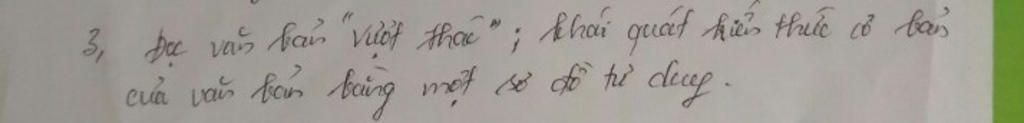 3, Đọc văn bản "Vượt thác"; khái quát kiến thức cơ bản
của văn bản bằng một sơ đồ tư duy.